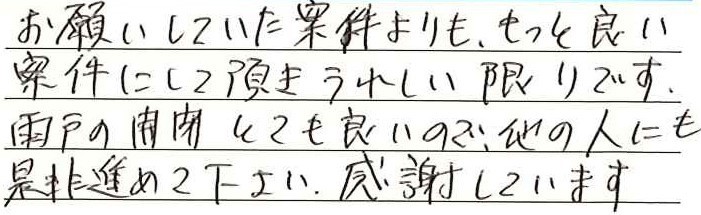 お願いしていた案件よりも、もっと良い
案件にして頂きうれしい限りです.
雨戸の開閉とても良いので、他の人にも
是非進めて下よい.感謝しています